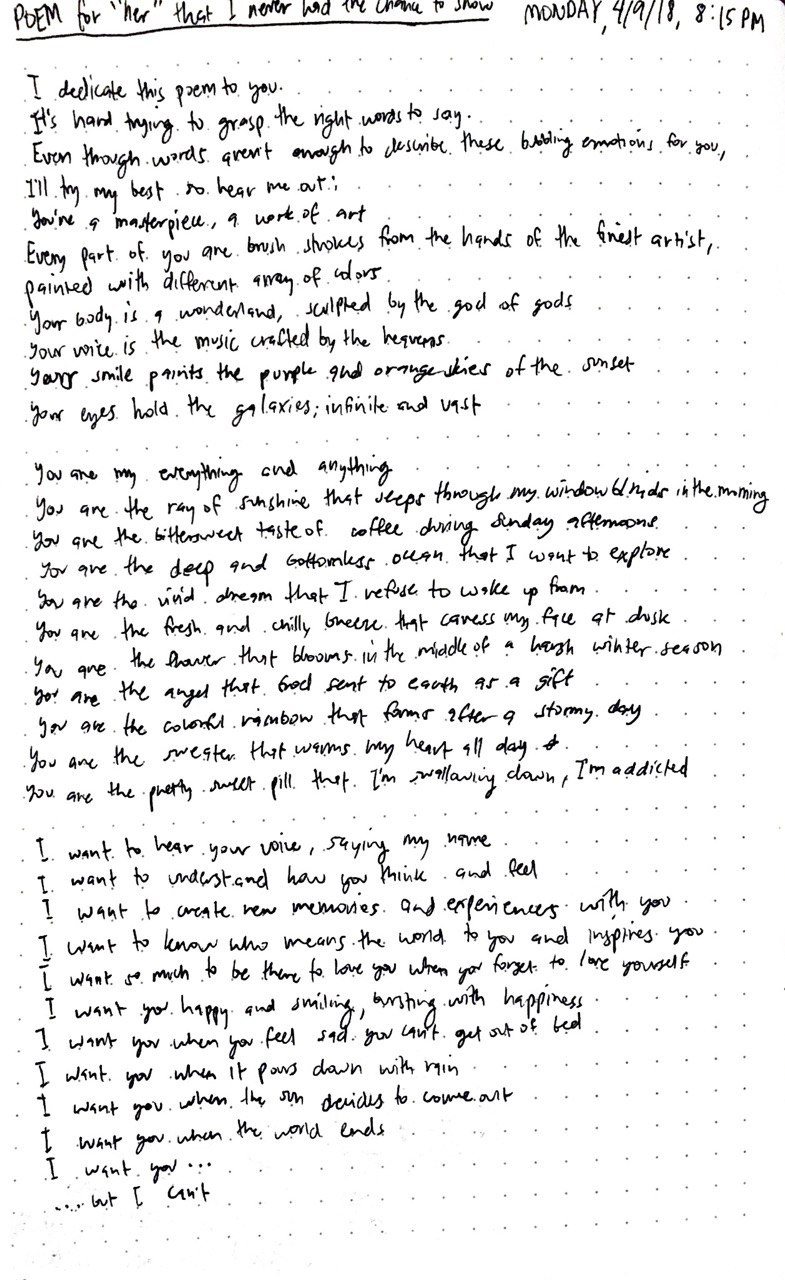 POEM for "her" that I never had the chance to show MONDAY, 4/9/18, 8:15 PM
I dedicate this poem to you.
It's hard trying to grasp the right words to say.
Even though words aren't enough to describe these bubbling emotions for you,
I'll try my best so hear me out:
You're a masterpiece, a work of art
Every part of you are brush strokes from the hands of the finest artist,
painted with different array of colors
Your body is a wonderland, sculpted by the god of gods
Your voice is the music crafted by the heavens
Your smile paints the purple and orange skies of the sunset
Your eyes hold the galaxies; infinite and vast
You are my everything and anything
You are the ray of sunshine that seeps through my window blinds in the morning
You are the bittersweet taste of coffee during Sunday afternoons
You are the deep and bottomless ocean that I want to explore
You are the vivid dream that I refuse to wake up from
You are the fresh and chilly breeze that caress my face at dusk
You are the flower that blooms in the middle of a harsh winter season
You are the angel that God sent to earth as a gift
You are the colorful rainbow that forms after a stormy day
You are the sweater that warms my heart all day
You are the pretty sweet pill that I'm swallowing down, I'm addicted
I want to hear your voice, saying my name
I want to understand how you think and feel
I want to create new memories and experiences with you
I want to know who means the world to you and inspires you
I want so much to be there to love you when you forget to love yourself
I want you happy and smiling, bursting with happiness
I want you when you feel sad you can't get out of bed
I want you when it pours down with rain
I want you when the sun decides to come out
I want you when the world ends
I want you ...
.... but I can't